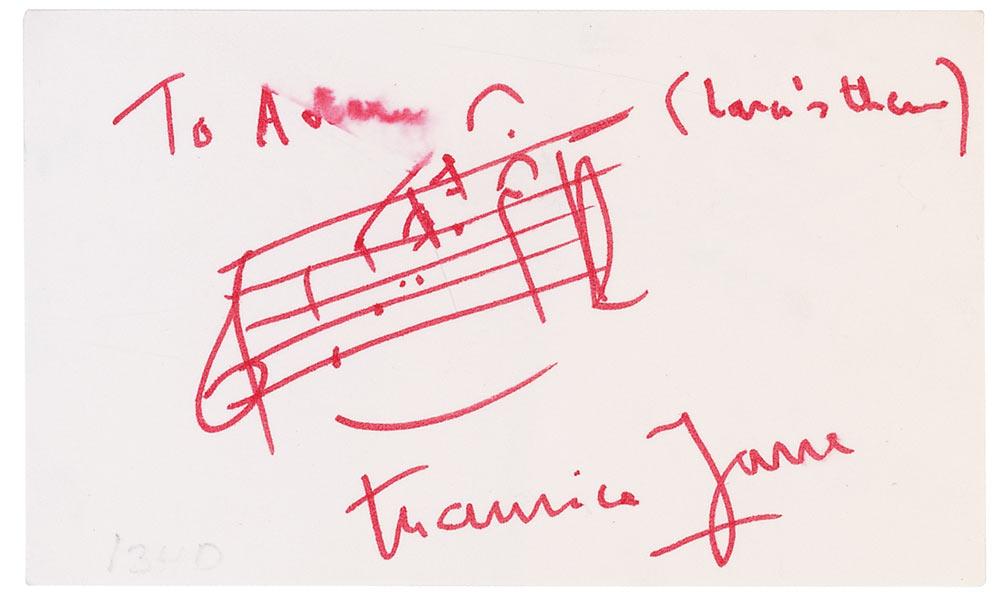 To (Lara's theme)
Maurice Jarre
1340